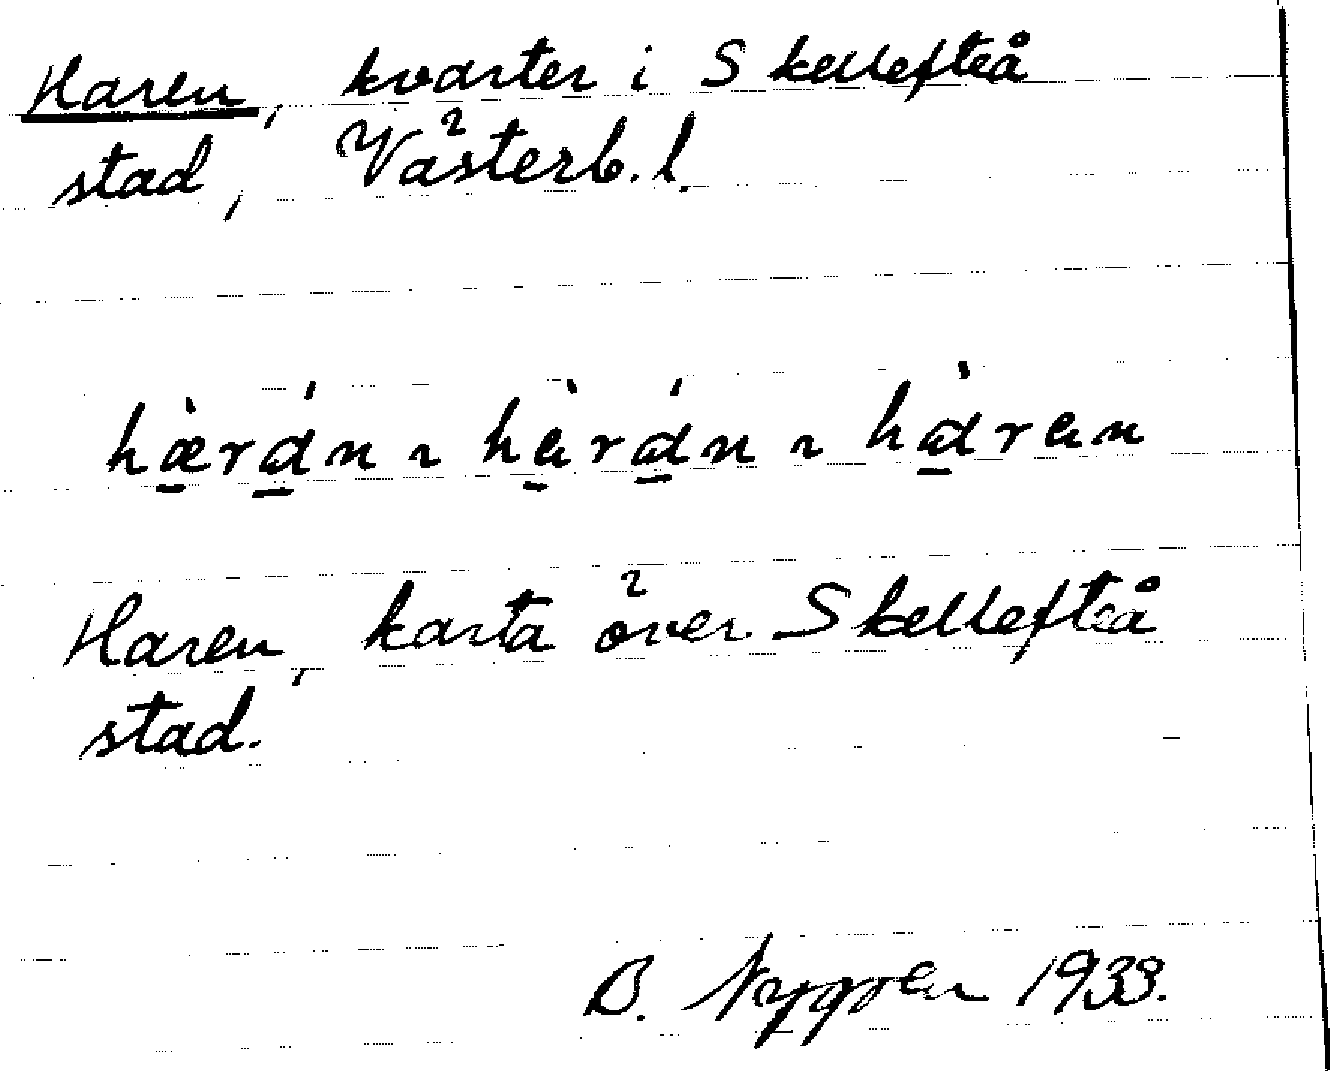 Haren, kvarter i Skellefteå
stad, Västerb. l.
hæ̀rán ~ hàrán ~ hàran
Haren, karta över Skellefteå
stad.
B. Nygren 1938.